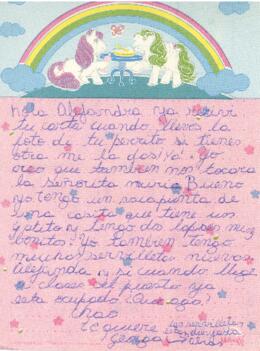 hola Alejandra ya recivi
tu carta cuando lleves la
foto de tu perrito si tienes
otra me la das! Ya! Yo
creo que tambien nos tocara
la señorita Bueno
yo tengo un sacapunta de
una casita que tiene un
gatito y tengo dos lapises muy
bonitos! Yo tambien tengo
muchas servilletas nuevas
Alejandra y si cuando llege
a clases el puesto ya
esta ocupado Que ago?
Chao
te quiere
las servilletas